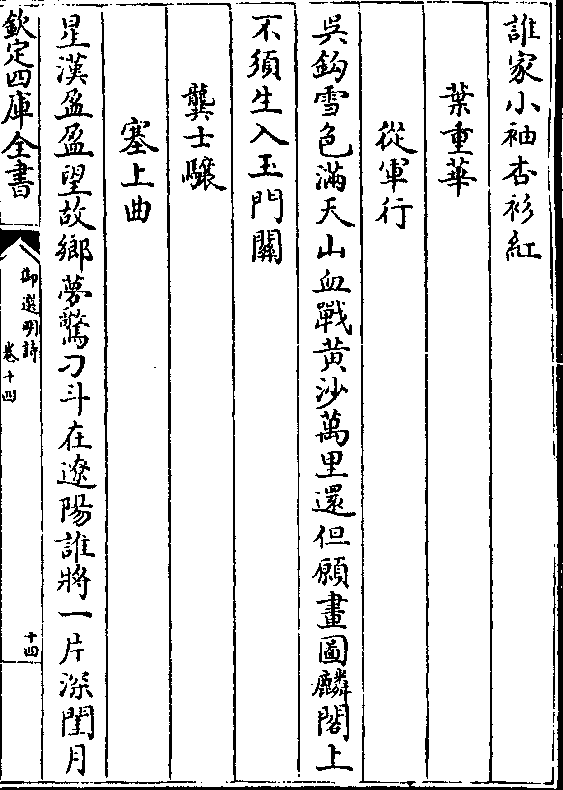 誰家小袖杏衫紅
葉重華
從軍行
吳鈎雪色滿天山血戰黄沙萬里還但願畫圖麟閣上
不須生入玉門關
龔士驤
塞上曲
星漢盈盈望故鄉夢驚刁斗在遼陽誰將一片深閨月
欽定四庫全書
御選明詩
卷十四
十四